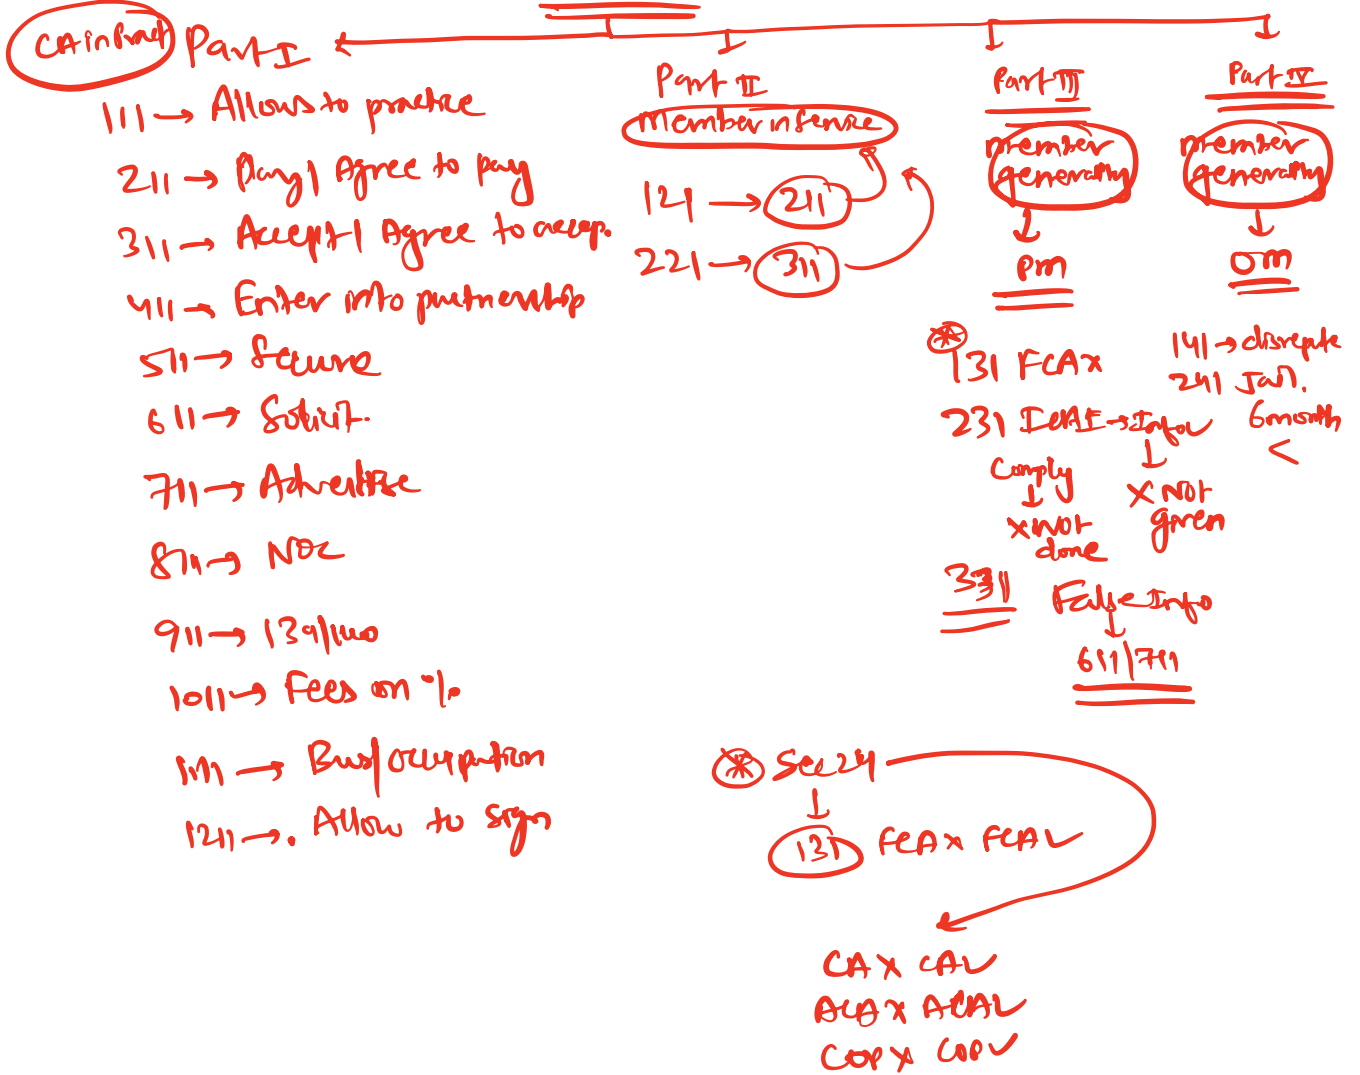 CA in Pract
Part I
111 → Allows to practice
211 → Pay | Agree to pay
311 → Accept | Agree to accep.
411 → Enter into partnership
511 → Secure
611 → Solicit.
711 → Advertise
811 → NOC
911 → 139/140
1011 → Fees on %.
1111 → Bus/occupation
1211 → . Allow to sign
Part II
Member in service
121 → 211
221 → 311
Part III
member
generally
PM
131 FCA x
231 ICAI → Info ✓
Comply
x Not
done
x Not
given
331 False Info
611/711
Part IV
member
generally
OM
141 → disrepute
241 Jail.
6 month
<
Sec 24
131 FCA x FCA ✓
CA x CA ✓
ACA x ACA ✓
COP x COP ✓